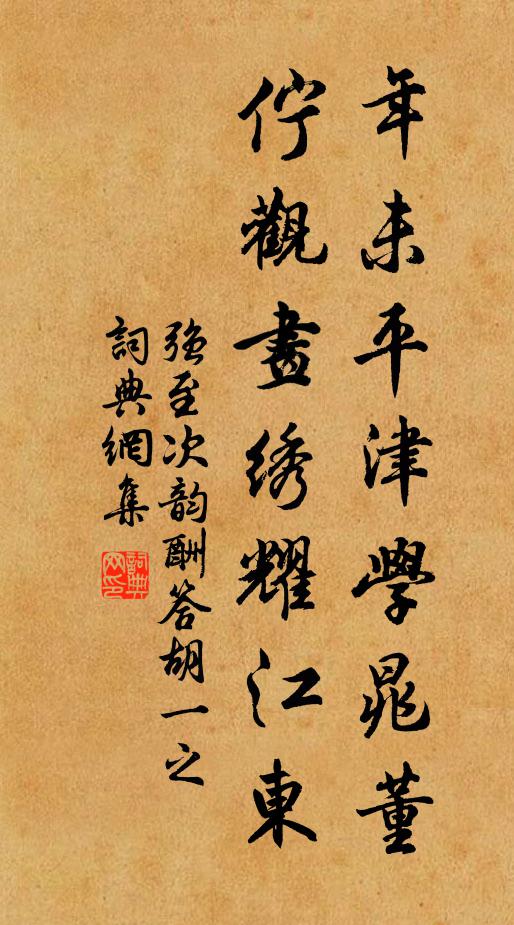 年未平津學晁董
佇觀晝綉耀江東
強至次韵酬答胡一之
詞典網集
詞典
网印